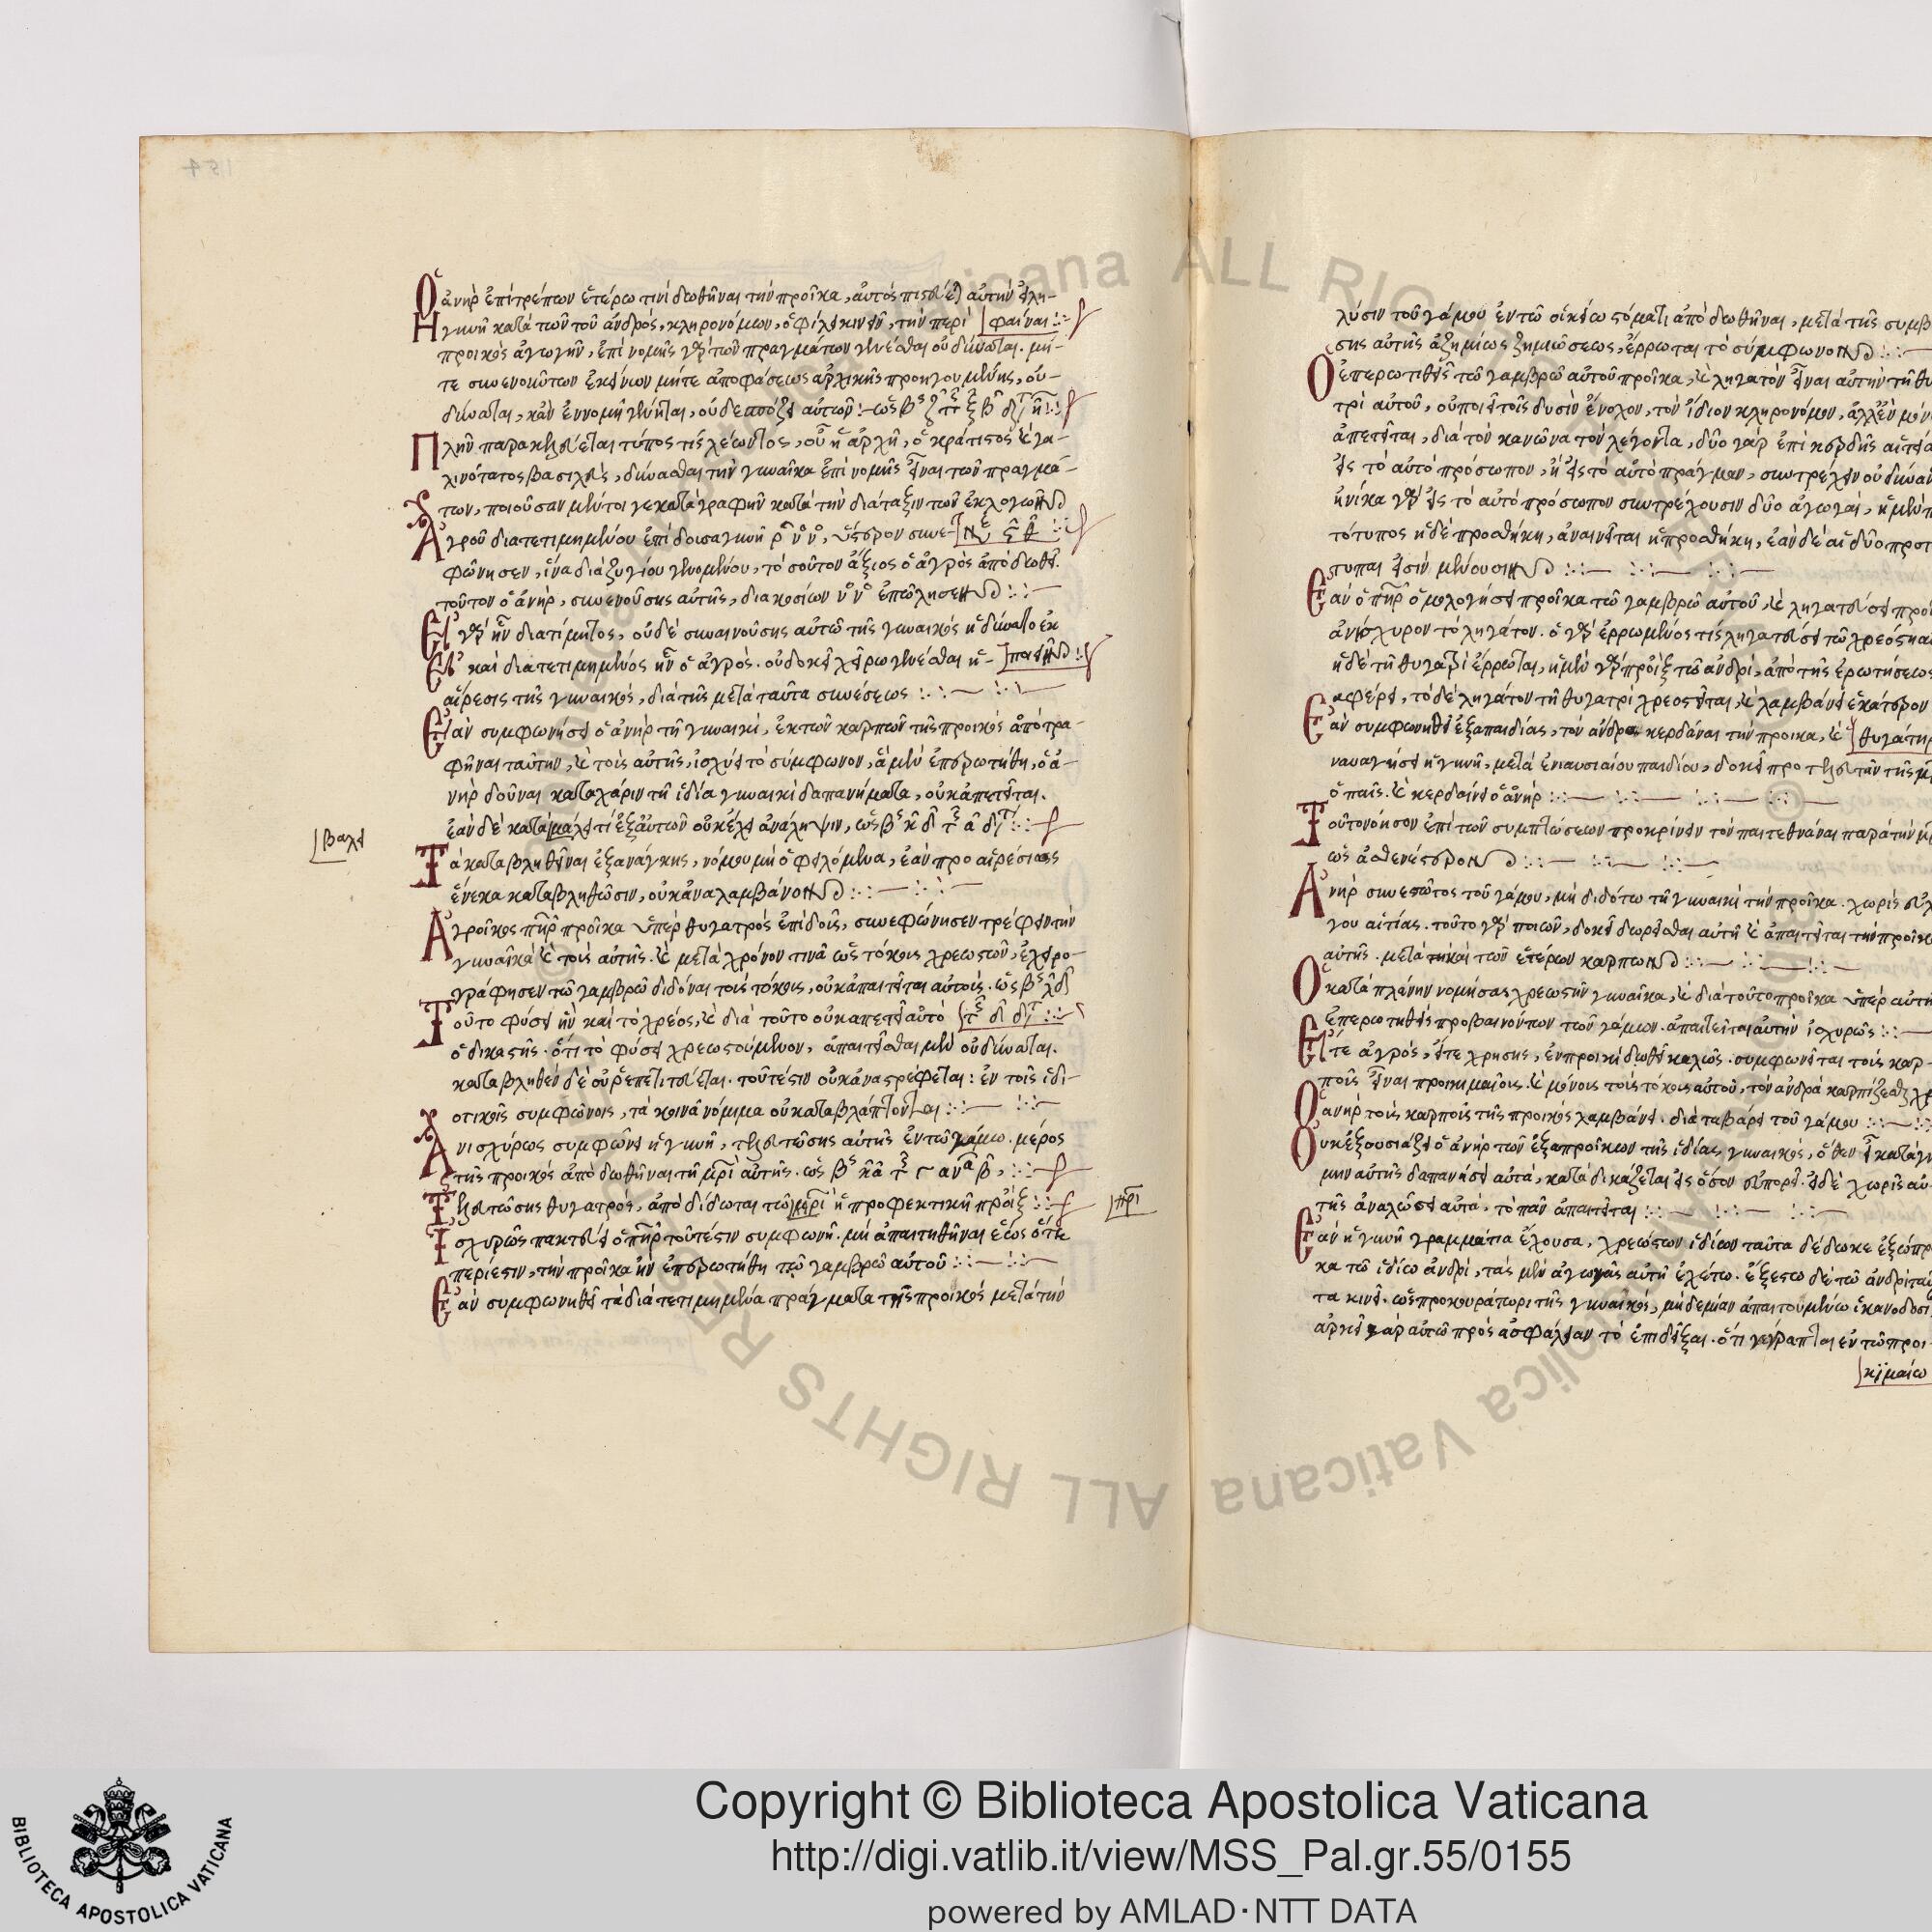 Ὁ ἀνὴρ ἐπιτρέπων ἑτέρω τινὶ δωθῆναι τὴν προῖκα, αὐτὸς πιστεύει αὐτὴν εἰλη-
Ἡ γυνὴ κατὰ τῶν τοῦ ἀνδρὸς, κληρονόμων, ὀφίλει κινεῖν, τὴν περὶ φαίναι
προικὸς ἀγωγὴν, ἐπὶ νομῆς γὰρ τῶν πραγμάτων γενέσθαι οὐ δύναται. μή-
τε συνενούντων ἐκείνων μήτε ἀποφάσεως ἀρχικῆς προηγουμένης, οὐ
δύναται, κἂν ἐν νομῆ γένηται, οὐ δεσπόζει αὐτῶν
Πλὴν παρακελεύεται τύπος τίς λέωντος, οὗ ἡ ἀρχὴ, ὁ κράτιστος καὶ γα-
λινότατος βασιλεὺς, δύνασθαι τὴν γυναῖκα ἐπὶ νομῆς εἶναι τῶν πραγμά-
των, ποιοῦσαν μέντοι γε καταγραφὴν κατὰ τὴν διάταξιν τῶν ἐκλογῶν
Ἀγροῦ διατετιμημένου ἐπιδοῖσα γυνὴ ρ νο νο, ὕστερον συνε-
φώνησεν, ἵνα διαζυγίου γενομένου, τοσοῦτον ἄξιος ὁ ἀγρὸς ἀποδωθεῖ
τοῦτον ὁ ἀνὴρ, συνενούσης αὐτῆς, διακοσίων νο νο ἐπώλησεν
Εἰ γὰρ ἦν διατίμητος, οὐδὲ συναινούσης αὐτῶ τῆς γυναικὸς ἠδύνατο ἐκ
Εἰ καὶ διατετιμημένος ἦν ὁ ἀγρὸς. οὐ δοκεῖ χείρω γενέσθαι ἡ ποιεῖν
αἵρεσις τῆς γυναικὸς, διὰ τῆς μετὰ ταῦτα συνέσεως
Ἐὰν συμφωνήσει ὁ ἀνὴρ τῇ γυναικὶ, ἐκ τῶν καρπῶν τῆς προικὸς ἀποτρα-
φῆναι ταύτην, καὶ τοὶς αὐτῆς, ἰσχύει τὸ σύμφωνον, ἃ μὲν ἐπερωτήθη, ὁ ἀ-
νὴρ δοῦναι κατὰ χάριν τῆ ἰδία γυναικὶ δαπανήματα, οὐκ ἀπετεῖται.
ἐὰν δὲ καταμάλει τί ἐξ αὐτῶν οὐκ ἔχει ἀνάληψιν,
βαλει
Τὰ καταβληθεῖναι ἐξανάγκης, νόμου μὴ ὀφειλόμενα, ἐὰν προαιρέσεως
ἕνεκα καταβληθῶσιν, οὐκ ἀναλαμβάνον
Ἀγροῖκος πὴρ προῖκα ὑπὲρ θυγατρὸς ἐπιδοὶς, συνεφώνησεν τρέφειν τὴν
γυναῖκα καὶ τοὶς αὐτῆς. καὶ μετὰ χρόνον τινὰ ὡς τόκοις χρεωστῶν, ἐχειρο-
γράφησεν τῶ γαμβρῶ διδόναι τοὶς τόκοις, οὐκ ἀπαιτεῖται αὐτοὶς.
Τοῦτο φύσει ἦν καὶ τὸ χρέος, καὶ διὰ τοῦτο οὐκ απετεῖ αὐτὸ
ὁ δικαστὴς. ὅτι τὸ φύσει χρεωστούμενον, ἀπαιτεῖσθαι μὲν οὐ δύναται.
καταβληθὲν δὲ οὐ ρεπετιτεύεται. τουτέστιν οὐκ ἀναστρέφεται: ἐν τοῖς ἰδι-
οτικοῖς συμφώνοις, τὰ κοινὰ νόμιμα οὐ καταβλάπτονται
Ἀνισχύρως συμφωνεῖ ἡ γυνὴ, τελευτώσης αὐτῆς ἐν τῶ γάμω. μέρος
τῆς προικὸς ἀποδωθῆναι τῆ μρὶ αὐτῆς.
Τελευτώσης θυγατρὸς, ἀποδίδωται τῶ μρὶ ἡ προφεκτικὴ προὶξ
πρὶ
Ἰσχυρῶς πακτεύει ὁ πὴρ τουτέστιν συμφωνῆ. μὴ ἀπαιτηθῆναι ἕως ὅτε
περίεστιν, τὴν προῖκα ἣν ἐπερωτήθη τῷ γαμβρῶ αὐτοῦ
Ἐὰν συμφωνηθεῖ τὰ διατετιμημένα πράγματα τῆς προικὸς μετὰ τὴν
λύσιν τοῦ γάμου ἐν τῶ οἰκείω στόματι ἀποδωθῆναι, μετὰ τῆς συμβ
σης αὐτῆς ἀζημίως ζημιώσεως, ἔρρωται τὸ σύμφωνον
Ὁ ἐπερωτηθεὶς τῶ γαμβρῶ αὐτοῦ προῖκα, καὶ ληγατὸν εἶναι αὐτὴν τῆ θυ
τρὶ αὐτοῦ, οὐ ποιεῖ τοῖς δυσὶν ἔνοχον, τὸν ἴδιον κληρονόμον, ἀλλ' ἓν μόν
ἀπετεῖται, διὰ τὸν κανῶνα τὸν λέγοντα, δύο γὰρ ἐπικερδεῖς αἰτείαι
εἰς τὸ αὐτὸ πρόσωπον, ἢ εἰς τὸ αὐτὸ πράγμαν, συντρέχειν οὐ δύναν
ἡνίκα γὰρ εἰς τὸ αὐτὸ πρόσωπον συντρέχουσιν δύο ἀγωγαὶ, ἡ μὲν π
τότυπος ἡ δὲ προσθήκη, ἀναινεῖται ἡ προσθήκη, ἐὰν δὲ αἱ δύο προτ
τυπαι εἰσὶν μένουσιν
Ἐὰν ὁ πὴρ ὁμολογήσει προῖκα τῶ γαμβρῶ αὐτοῦ, καὶ ληγατεύσει προῖ
ἀνίσχυρον τὸ ληγάτον. ὁ γὰρ ἐρρωμένος τίς ληγατεύσει τῶ χρεόστη αυ
ἡ δὲ τῆ θυγατρὶ ἔρρωται, ἡ μὲν γὰρ προὶξ τῶ ἀνδρὶ, ἀπὸ τῆς ἐρωτήσεως
διαφέρει, τὸ δὲ ληγάτον τῆ θυγατρὶ χρεοστεῖται, καὶ λαμβάνει ἑκάτερον
Ἐὰν συμφωνηθεῖ ἐξ απαιδίας, τὸν ἄνδρα κερδάναι τὴν προικα, καὶ θυγάτηρ
ναυαγήσει ἡ γυνὴ, μετὰ ἐνιαυσιαίου παιδίου, δοκεῖ προτελευτᾶν τῆς μρ
ὁ παῖς. καὶ κερδαίνει ὁ ἀνὴρ
Τοῦτο νόησον ἐπὶ τῶν συμπτώσεων προκρίνειν τὸν παῖ τεθνάναι παρὰ τὴν
ὡς ἀσθενέστερον
Ἀνὴρ συνεστῶτος τοῦ γάμου, μὴ διδότω τῆ γυναικὶ τὴν προῖκα. χωρὶς εὐλ
γου αἰτίας. τοῦτο γὰρ ποιῶν, δοκεῖ δωρεῖσθαι αὐτῆ καὶ ἀπαιτεῖται τὴν προῖκα
αὐτῆς. μετὰ καὶ τῶν ἑτέρων καρπων
Ὁ κατὰ πλάνην νομήσας χρεωστῆν γυναῖκα, καὶ διὰ τοῦτο προῖκα ὑπὲρ αὐτῆ
ἐπερωτηθεὶς προβαινούντων τῶν γάμων. ἀπαιτεῖται αὐτὴν ἰσχυρῶς
Εἴτε ἀγρὸς, εἴτε χρησης, ἐν προικὶ δωθεῖ καλῶς. συμφωνεῖται τοὶς καρ-
ποῖς εἶναι προικιμαίοις. καὶ μόνοις τοὶς τόκοις αὐτοῦ, τὸν ἄνδρα καρπίζεσθαι
Ὁ ἀνὴρ τοὶς καρποὶς τῆς προικὸς λαμβάνει. διὰ τα βάρει τοῦ γάμου
Οὐκ ἐξουσιάζει ὁ ἀνὴρ τῶν ἐξωπροίκων τῆς ἰδίας γυναικὸς, ὅθεν εἰ κατὰ γν
μην αὐτῆς δαπανήσει αὐτὰ, καταδικάζεται εἰς ὅσον εὐπορεῖ. εἰ δὲ χωρὶς αὐ
τῆς ἀναλώσει αὐτὰ, τὸ πᾶν ἀπαιτεῖται
Ἐὰν ἡ γυνὴ γραμμάτια ἔχουσα, χρεώστων ἰδίων ταῦτα δέδωκε ἐξώπρ
κα τῶ ἰδίω ἀνδρὶ, τὰς μὲν ἀγωγὰς αὐτὴ ἐχέτω. ἐξέστω δὲ τῶ ἀνδρὶ ταύ
τα κινεῖ. ὡς προκουράτωρι τῆς γυναικὸς, μηδεμίαν ἀπαιτουμένω ἱκανοδοσί
ἀρκεῖ γὰρ αὐτῶ πρὸς ἀσφάλειαν τὸ ἐπιδεῖξαι. ὅτι γέγραπται ἐν τῶ προι-
κιμαίω
Copyright © Biblioteca Apostolica Vaticana
http://digi.vatlib.it/view/MSS_Pal.gr.55/0155
powered by AMLAD·NTT DATA
BIBLIOTECA APOSTOLICA VATICANA